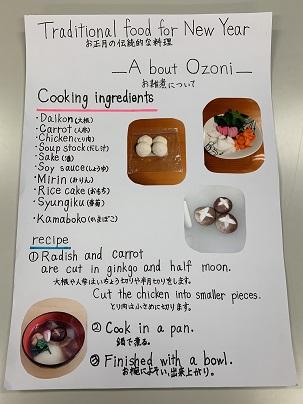 Traditional food for New Year
お正月の伝統的な料理
A bout Ozoni
お雑煮について
Cooking ingredients
・Daikon(大根)
・Carrot(人参)
・Chicken(とり肉)
・Soup stock(だし汁)
・Sake(酒)
・Soy sauce(しょうゆ)
・Mirin(みりん)
・Rice cake(おもち)
・Syungiku(春菊)
・Kamaboko(かまぼこ)
recipe
① Radish and carrot
are cut in ginkgo and half moon.
大根や人参はいちょう切りや半月切りをします。
Cut the chicken into smaller pieces.
とり肉は小さめに切ります。
② Cook in a pan.
鍋で煮る。
③ Finished with a bowl.
お椀によそい、出来上がり。